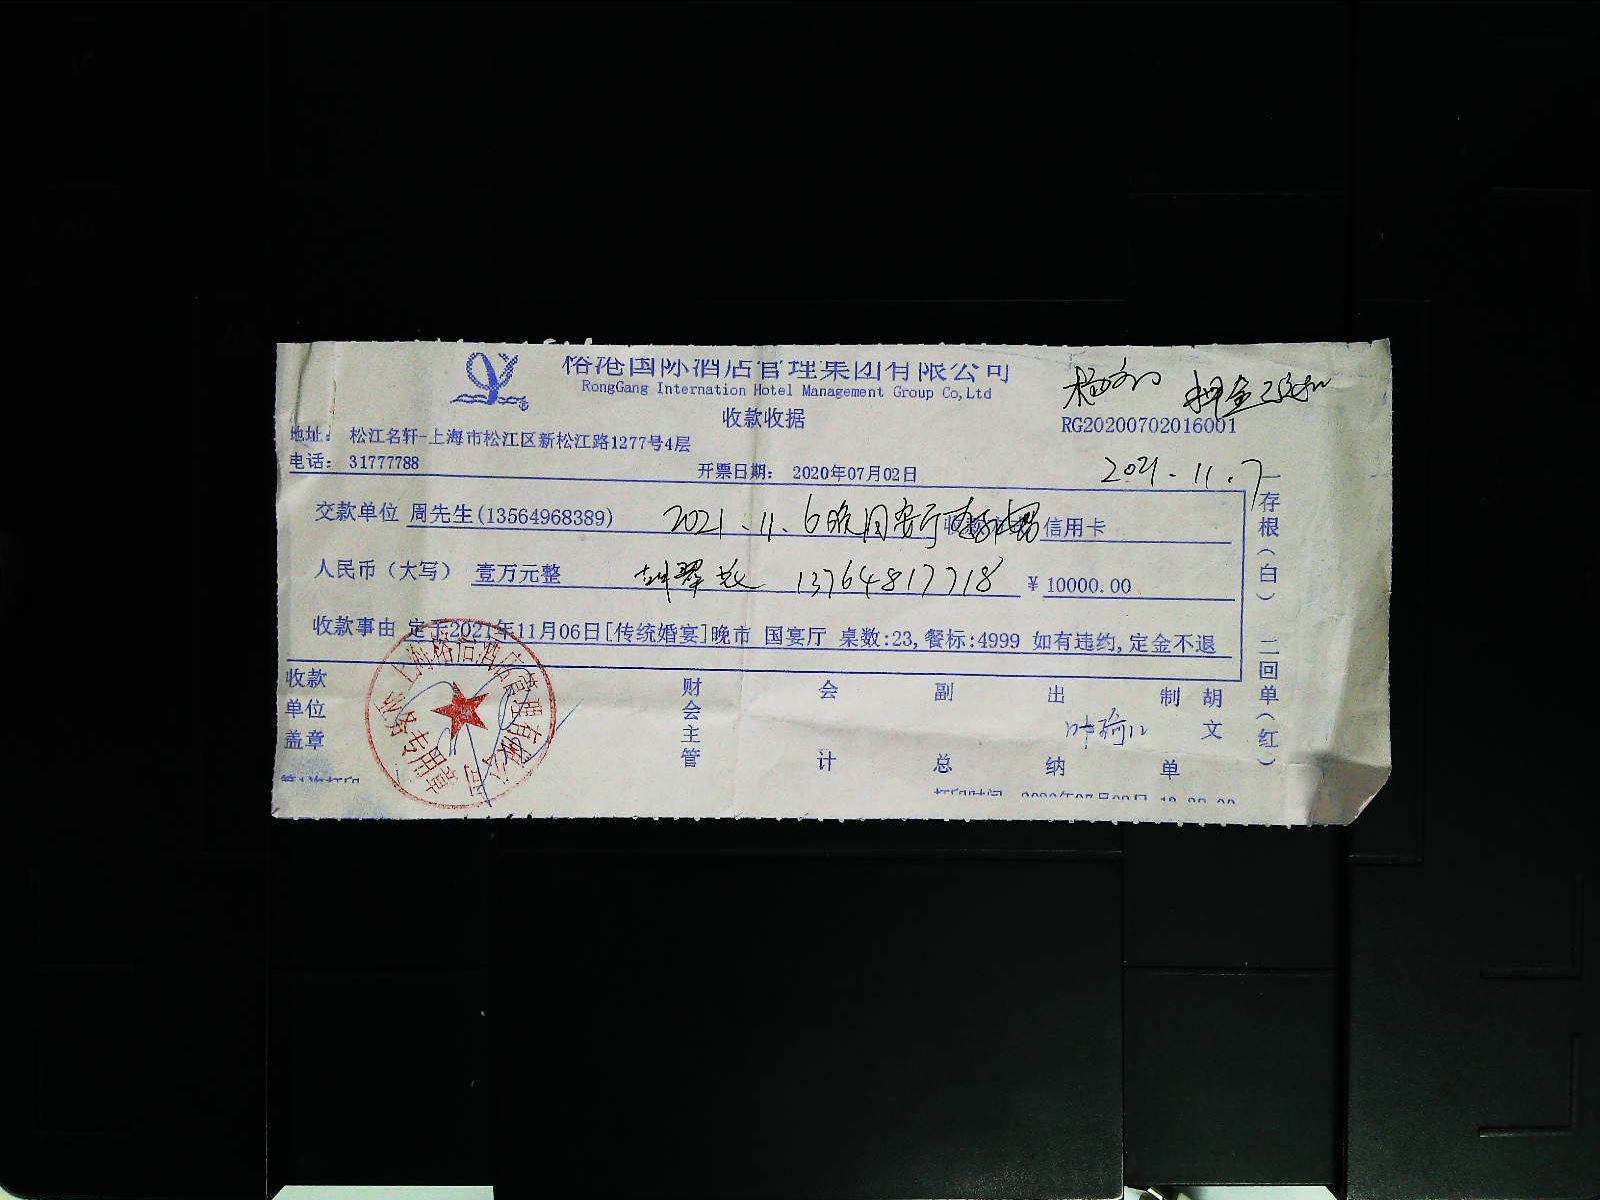 榕港国际酒店管理集团有限公司
RongGang Internation Hotel Management Group Co,Ltd
收款收据
押金已
RG20200702016001
地址: 松江名轩-上海市松江区新松江路1277号4层
电话: 31777788
开票日期: 2020年07月02日
2021.11.7
交款单位 周先生(13564968389)
2021.11.6晚 信用卡
人民币(大写) 壹万元整
13764817718
¥ 10000.00
收款事由 定于2021年11月06日[传统婚宴]晚市 国宴厅 桌数:23,餐标:4999 如有违约,定金不退
收款单位盖章
财会主管
会计
副总
出纳
制单
胡文
一存根(白) 二回单(红)
上海榕港酒店管理有限公司
业务专用章